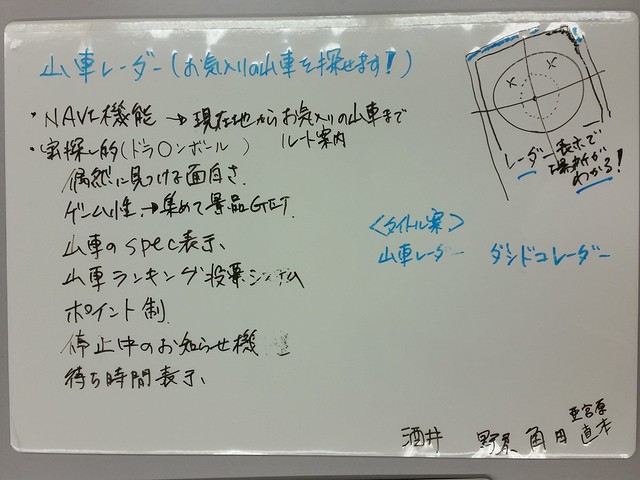 山車レーダー(お気入りの山車を探せます!)
・NAVI機能 → 現在地からお気入りの山車まで
ルート案内
・宝探し的(ドラ〇ンボール)
偶然に見つける面白さ
ゲーム性 → 集めて景品GET.
山車のspec表示、
山車ランキング投票システム
ポイント制
停止中のお知らせ機
待ち時間表示、
レーダー表示で
場所が
わかる!
<タイトル案>
山車レーダー ダシドコレーダー
酒井 角田